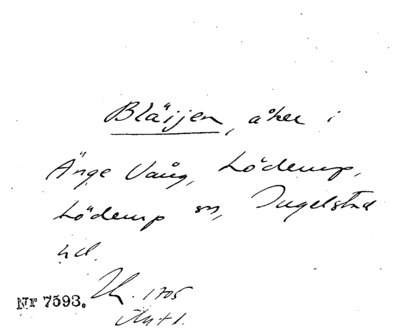 Bläijen, åker i
Änge Vång, Löderup,
Löderup sn, Ingelstad
hd.
Nr 7593. 1705